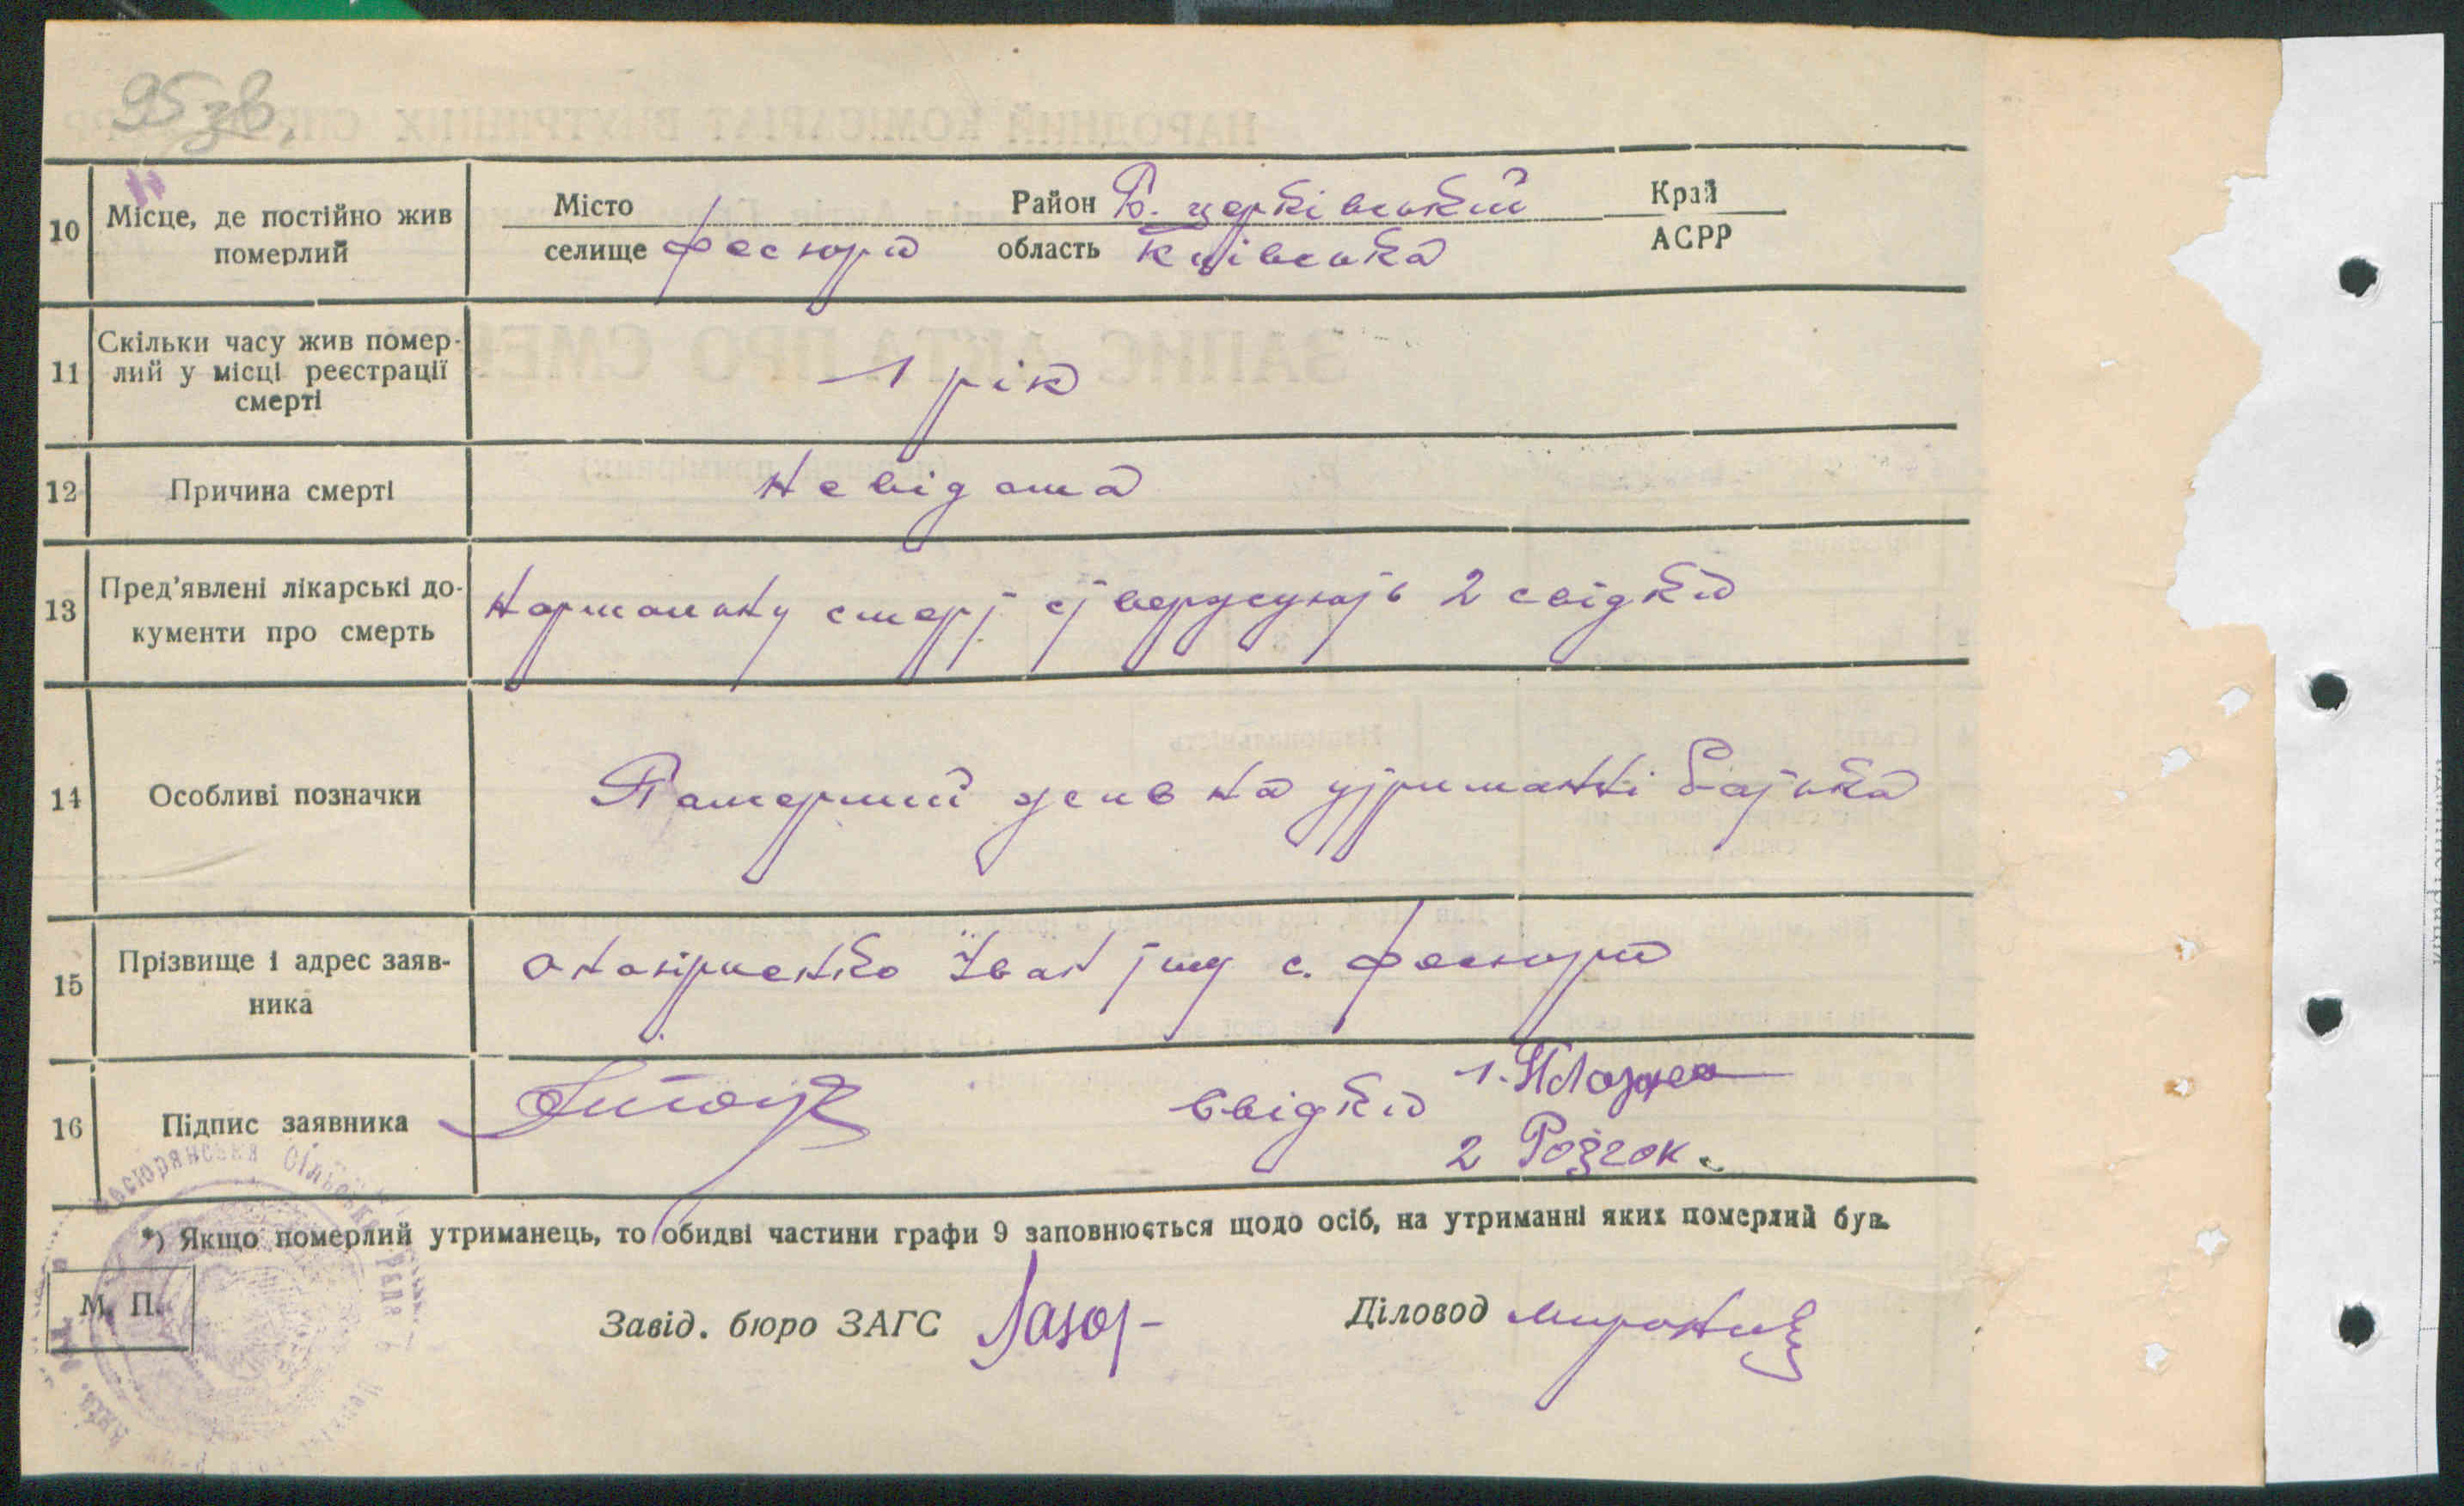 95 зв.
10 Місце, де постійно жив померлий
Місто
селище Фесюри
Район Б. церківський
область Київська
Край
АСРР
11 Скільки часу жив помер-
лий у місці реєстрації
смерті
1 рік
12 Причина смерті
Невідома
13 Пред'явлені лікарські до-
кументи про смерть
Нормальну смерть стверджують 2 свідки
14 Особливі позначки
Памерший на утриманні батька
15 Прізвище і адрес заяв-
ника
Іван с. Фесюри
16 Підпис заявника
Свідки 1.
2 Розгок.
*) Якщо померлий утриманець, то обидві частини графи 9 заповнюється щодо осіб, на утриманні яких померлий був.
М. П.
Завід. бюро ЗАГС
Діловод